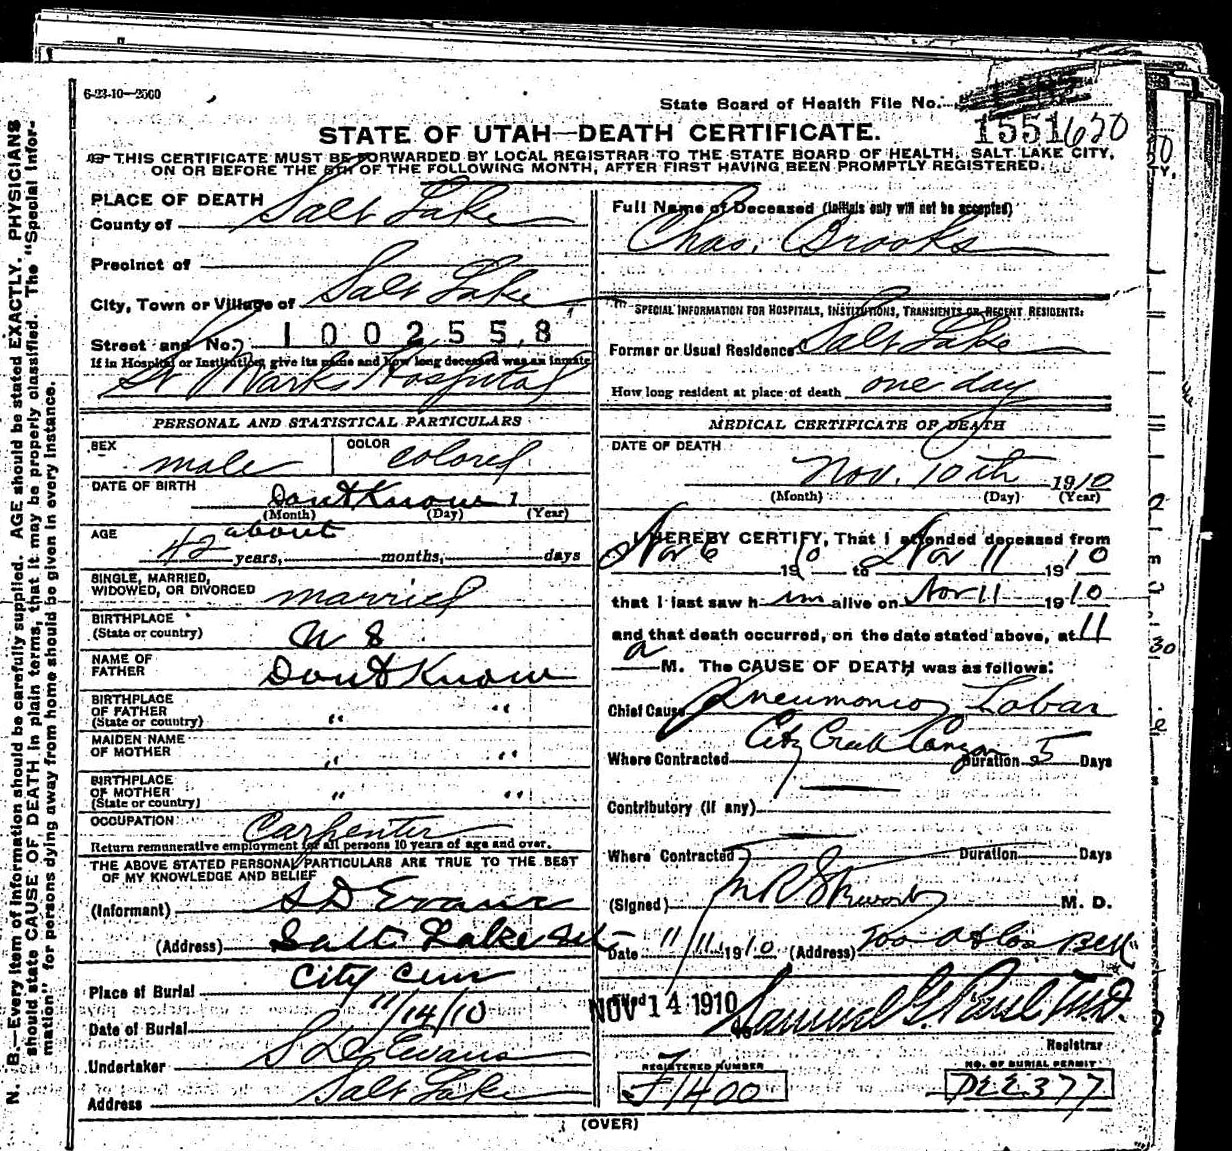 6-23-10—2500
State Board of Health File No.
1551620
STATE OF UTAH—DEATH CERTIFICATE.
THIS CERTIFICATE MUST BE FORWARDED BY LOCAL REGISTRAR TO THE STATE BOARD OF HEALTH, SALT LAKE CITY,
ON OR BEFORE THE 5TH OF THE FOLLOWING MONTH, AFTER FIRST HAVING BEEN PROMPTLY REGISTERED.
PLACE OF DEATH
County of Salt Lake
Precinct of
City, Town or Village of Salt Lake
Street and No. 1002558
If in Hospital or Institution, give its name and how long deceased was an inmate
St Marks Hospital
PERSONAL AND STATISTICAL PARTICULARS
SEX male COLOR colored
DATE OF BIRTH Dont Know 1
(Month) (Day) (Year)
AGE about
42 years, months, days
SINGLE, MARRIED,
WIDOWED, OR DIVORCED married
BIRTHPLACE
(State or country) U S
NAME OF
FATHER Dont Know
BIRTHPLACE
OF FATHER " "
(State or country)
MAIDEN NAME
OF MOTHER " "
BIRTHPLACE
OF MOTHER " "
(State or country)
OCCUPATION Carpenter
Return remunerative employment for all persons 10 years of age and over.
THE ABOVE STATED PERSONAL PARTICULARS ARE TRUE TO THE BEST
OF MY KNOWLEDGE AND BELIEF
(Informant) S D Evans
(Address) Salt Lake
Place of Burial City Cem
Date of Burial 11/14/10
Undertaker S D Evans
Address Salt Lake
Full Name of Deceased (Initials only will not be accepted)
Chas. Brooks
SPECIAL INFORMATION FOR HOSPITALS, INSTITUTIONS, TRANSIENTS OR RECENT RESIDENTS:
Former or Usual Residence Salt Lake
How long resident at place of death one day
MEDICAL CERTIFICATE OF DEATH
DATE OF DEATH
Nov. 10th 1910
(Month) (Day) (Year)
I HEREBY CERTIFY, That I attended deceased from
Nov 6 1910 to Nov 11 1910
that I last saw him alive on Nov 11 1910
and that death occurred, on the date stated above, at 11
a M. The CAUSE OF DEATH was as follows:
Chief Cause Pneumonia Lobar
Where Contracted City Creek Canyon Duration 5 Days
Contributory (if any)
Where Contracted Duration Days
(Signed) M. D.
Date 11/11 1910 (Address)
Filed NOV 14 1910 Samuel G. Paul M.D.
Registrar
REGISTERED NUMBER
F1400
NO. OF BURIAL PERMIT
DEE377
(OVER)
N. B.—Every item of information should be carefully supplied. AGE should be stated EXACTLY. PHYSICIANS
should state CAUSE OF DEATH in plain terms, that it may be properly classified. The "Special Infor-
mation" for persons dying away from home should be given in every instance.